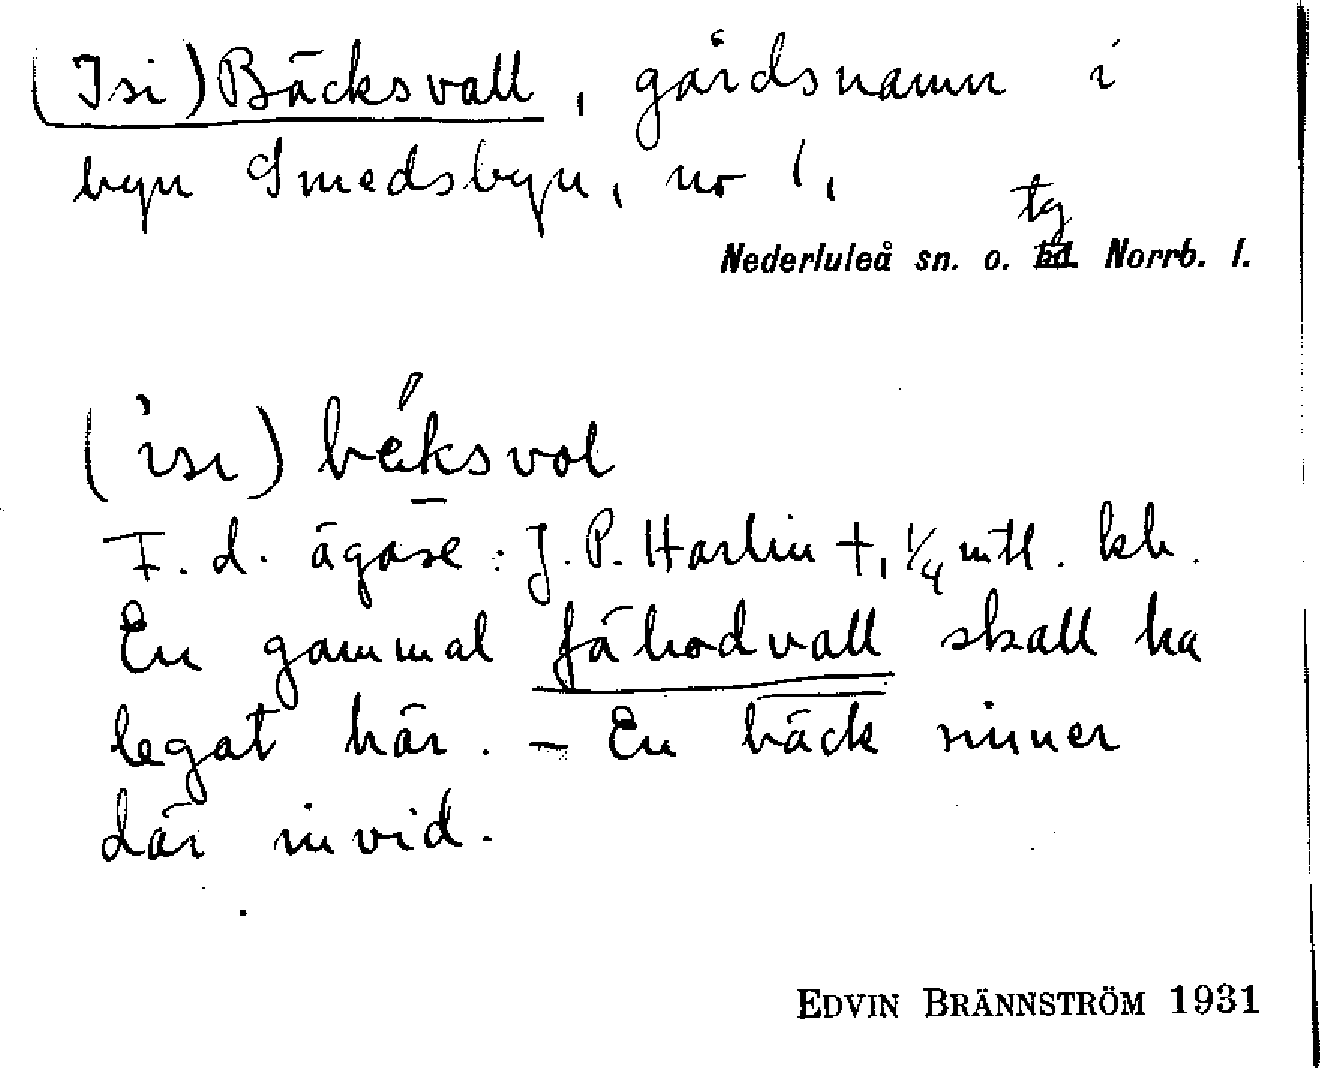 (Isi) Bäcksvall, gårdsnamn i
byn Smedsbyn, nr 1,
tg
Nederluleå sn. o. hd. Norrb. l.
(isi) béksvol
F. d. ägare: J. P. Harlin †, 1/4 mtl. kh.
En gammal fäbodvall skall ha
legat här. – En bäck rinner
där invid.
EDVIN BRÄNNSTRÖM 1931